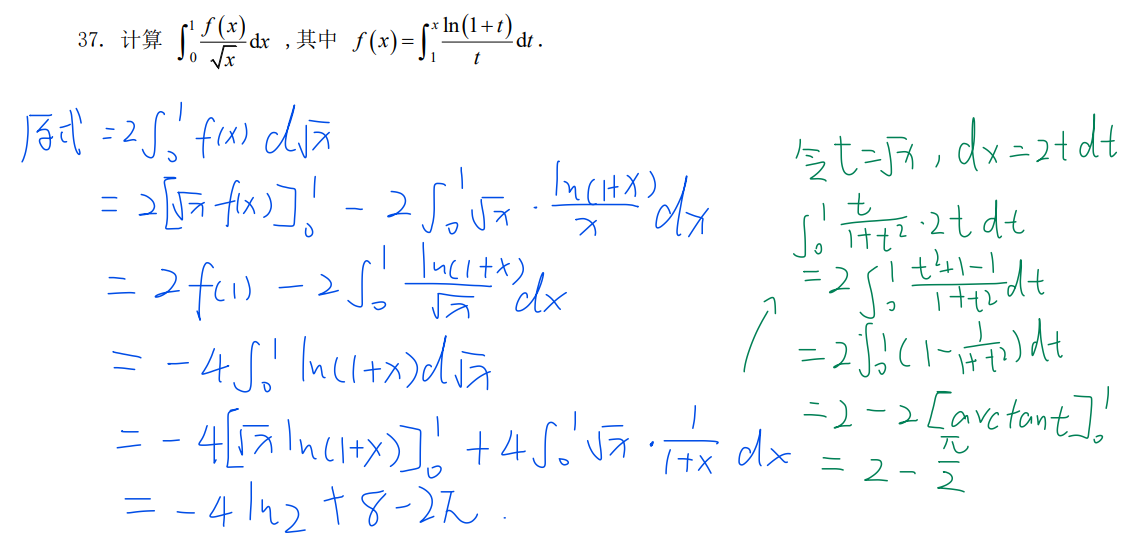 37. 计算 ∫₀¹ f(x)/√x dx ,其中 f(x)=∫₁ˣ ln(1+t)/t dt .
原式 = 2∫₀¹ f(x) d√x
= 2[√x f(x)]₀¹ - 2∫₀¹ √x · ln(1+x)/x dx
= 2f(1) - 2∫₀¹ ln(1+x)/√x dx
= -4∫₀¹ ln(1+x)d√x
= -4[√x ln(1+x)]₀¹ + 4∫₀¹ √x · 1/(1+x) dx
= -4ln2 + 8-2π .
令t=√x , dx=2t dt
∫₀¹ t/(1+t²) · 2t dt
= 2∫₀¹ (t²+1-1)/(1+t²) dt
= 2∫₀¹ (1- 1/(1+t²)) dt
= 2-2[arctant]₀¹
= 2- π/2